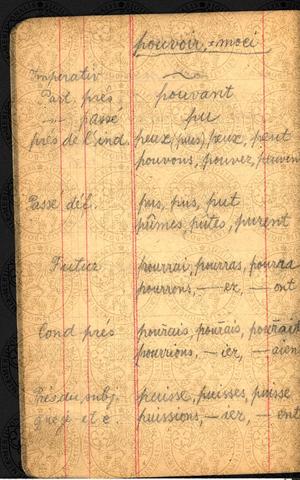 pouvoir, = moci
Imperativ ~
Part. prés. pouvant
— passé pu
prés de l'ind. peux (puis), peux, peut
pouvons, pouvez, peuven
Passé déf. pus, pus, put
pûmes, pûtes, purent
Futur pourrai, pourras, pourra
pourrons, — ez, — ont
Cond prés pourrais, pourrais, pourrait
pourrions, — iez, — aien
Prés du subj. puisse, puisses, puisse
puissions, — iez, — ent